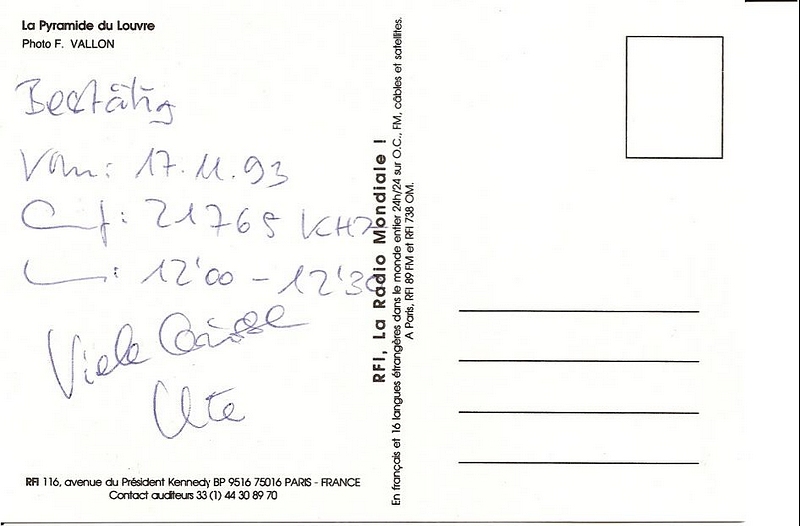 La Pyramide du Louvre
Photo F. VALLON
Bestätig
Vom: 17.11.93
Auf: 21765 KHZ
12'00 - 12'30
Viele Grüsse
Ute
RFI 116, avenue du Président Kennedy BP 9516 75016 PARIS - FRANCE
Contact auditeurs 33 (1) 44 30 89 70
RFI, La Radio Mondiale !
En français et 16 langues étrangères dans le monde entier 24h/24 sur O.C., FM, câbles et satellites.
A Paris, RFI 89 FM et RFI 738 OM.